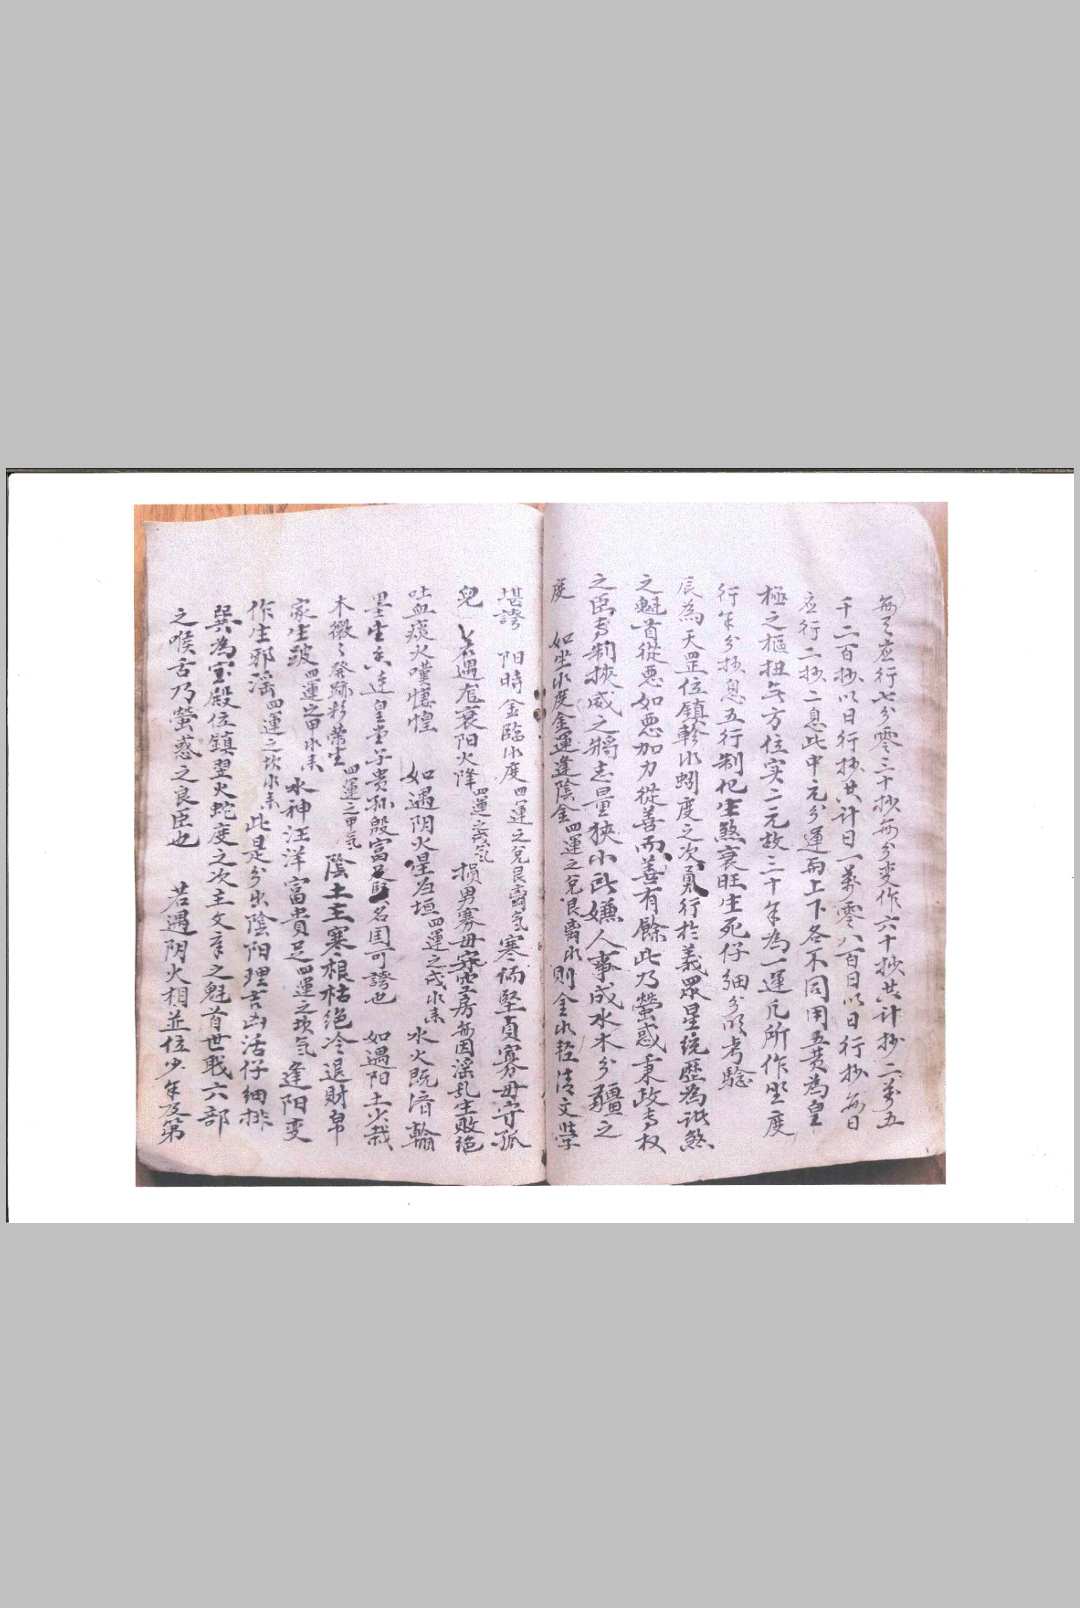 每天应行七分零三十抄每分变作六十抄共计抄二萬五
千二百抄以日行抄共计日一萬零八百日以日行抄每日
应行二抄二息此中元分運而上下各不同用五黄為皇
極之樞扭无方位实二元故三十年為一運凡所作坐度
行年分抄息五行制化生煞衰旺生死仔细分明考驗
辰為天罡位鎮軫水蚓度之次勇行於義眾星統歷為訛煞
之魁首從惡如惡加力從善而善有餘此乃螢惑秉政專权
之臣專制挾威之將志量狹小此嫌人事成水木分疆之
度 如坐水度金運逢陰金四運之兌艮离水則金水轻清文学
堪誇 阳時金臨水度四運之兌艮离气寒俩堅貞寡母守孤
兒 若遇危衰阳火降四運之离气損男寡母寂空房每因淫乱生败绝
吐血痰火嘆慞惶 如遇阴火星为垣四運之戌水未 水火既济翰
墨生香達皇堂子贵孙殷富足堅名国可誇也 如遇阳土少栽
木微々發跡杉荣生四運之甲气 陰土主寒根枯绝冷退財帛
家生跛四運之甲水未 水神汪洋富貴足四運之坎气 逢阳变
作生邪淫四運之坎水未此是分出陰阳理吉凶活仔細排
巽為宝殿位鎮翌火蛇度之次主文章之魁首世戢六部
之喉舌乃螢惑之良臣也 若遇阴火相並位少年及第